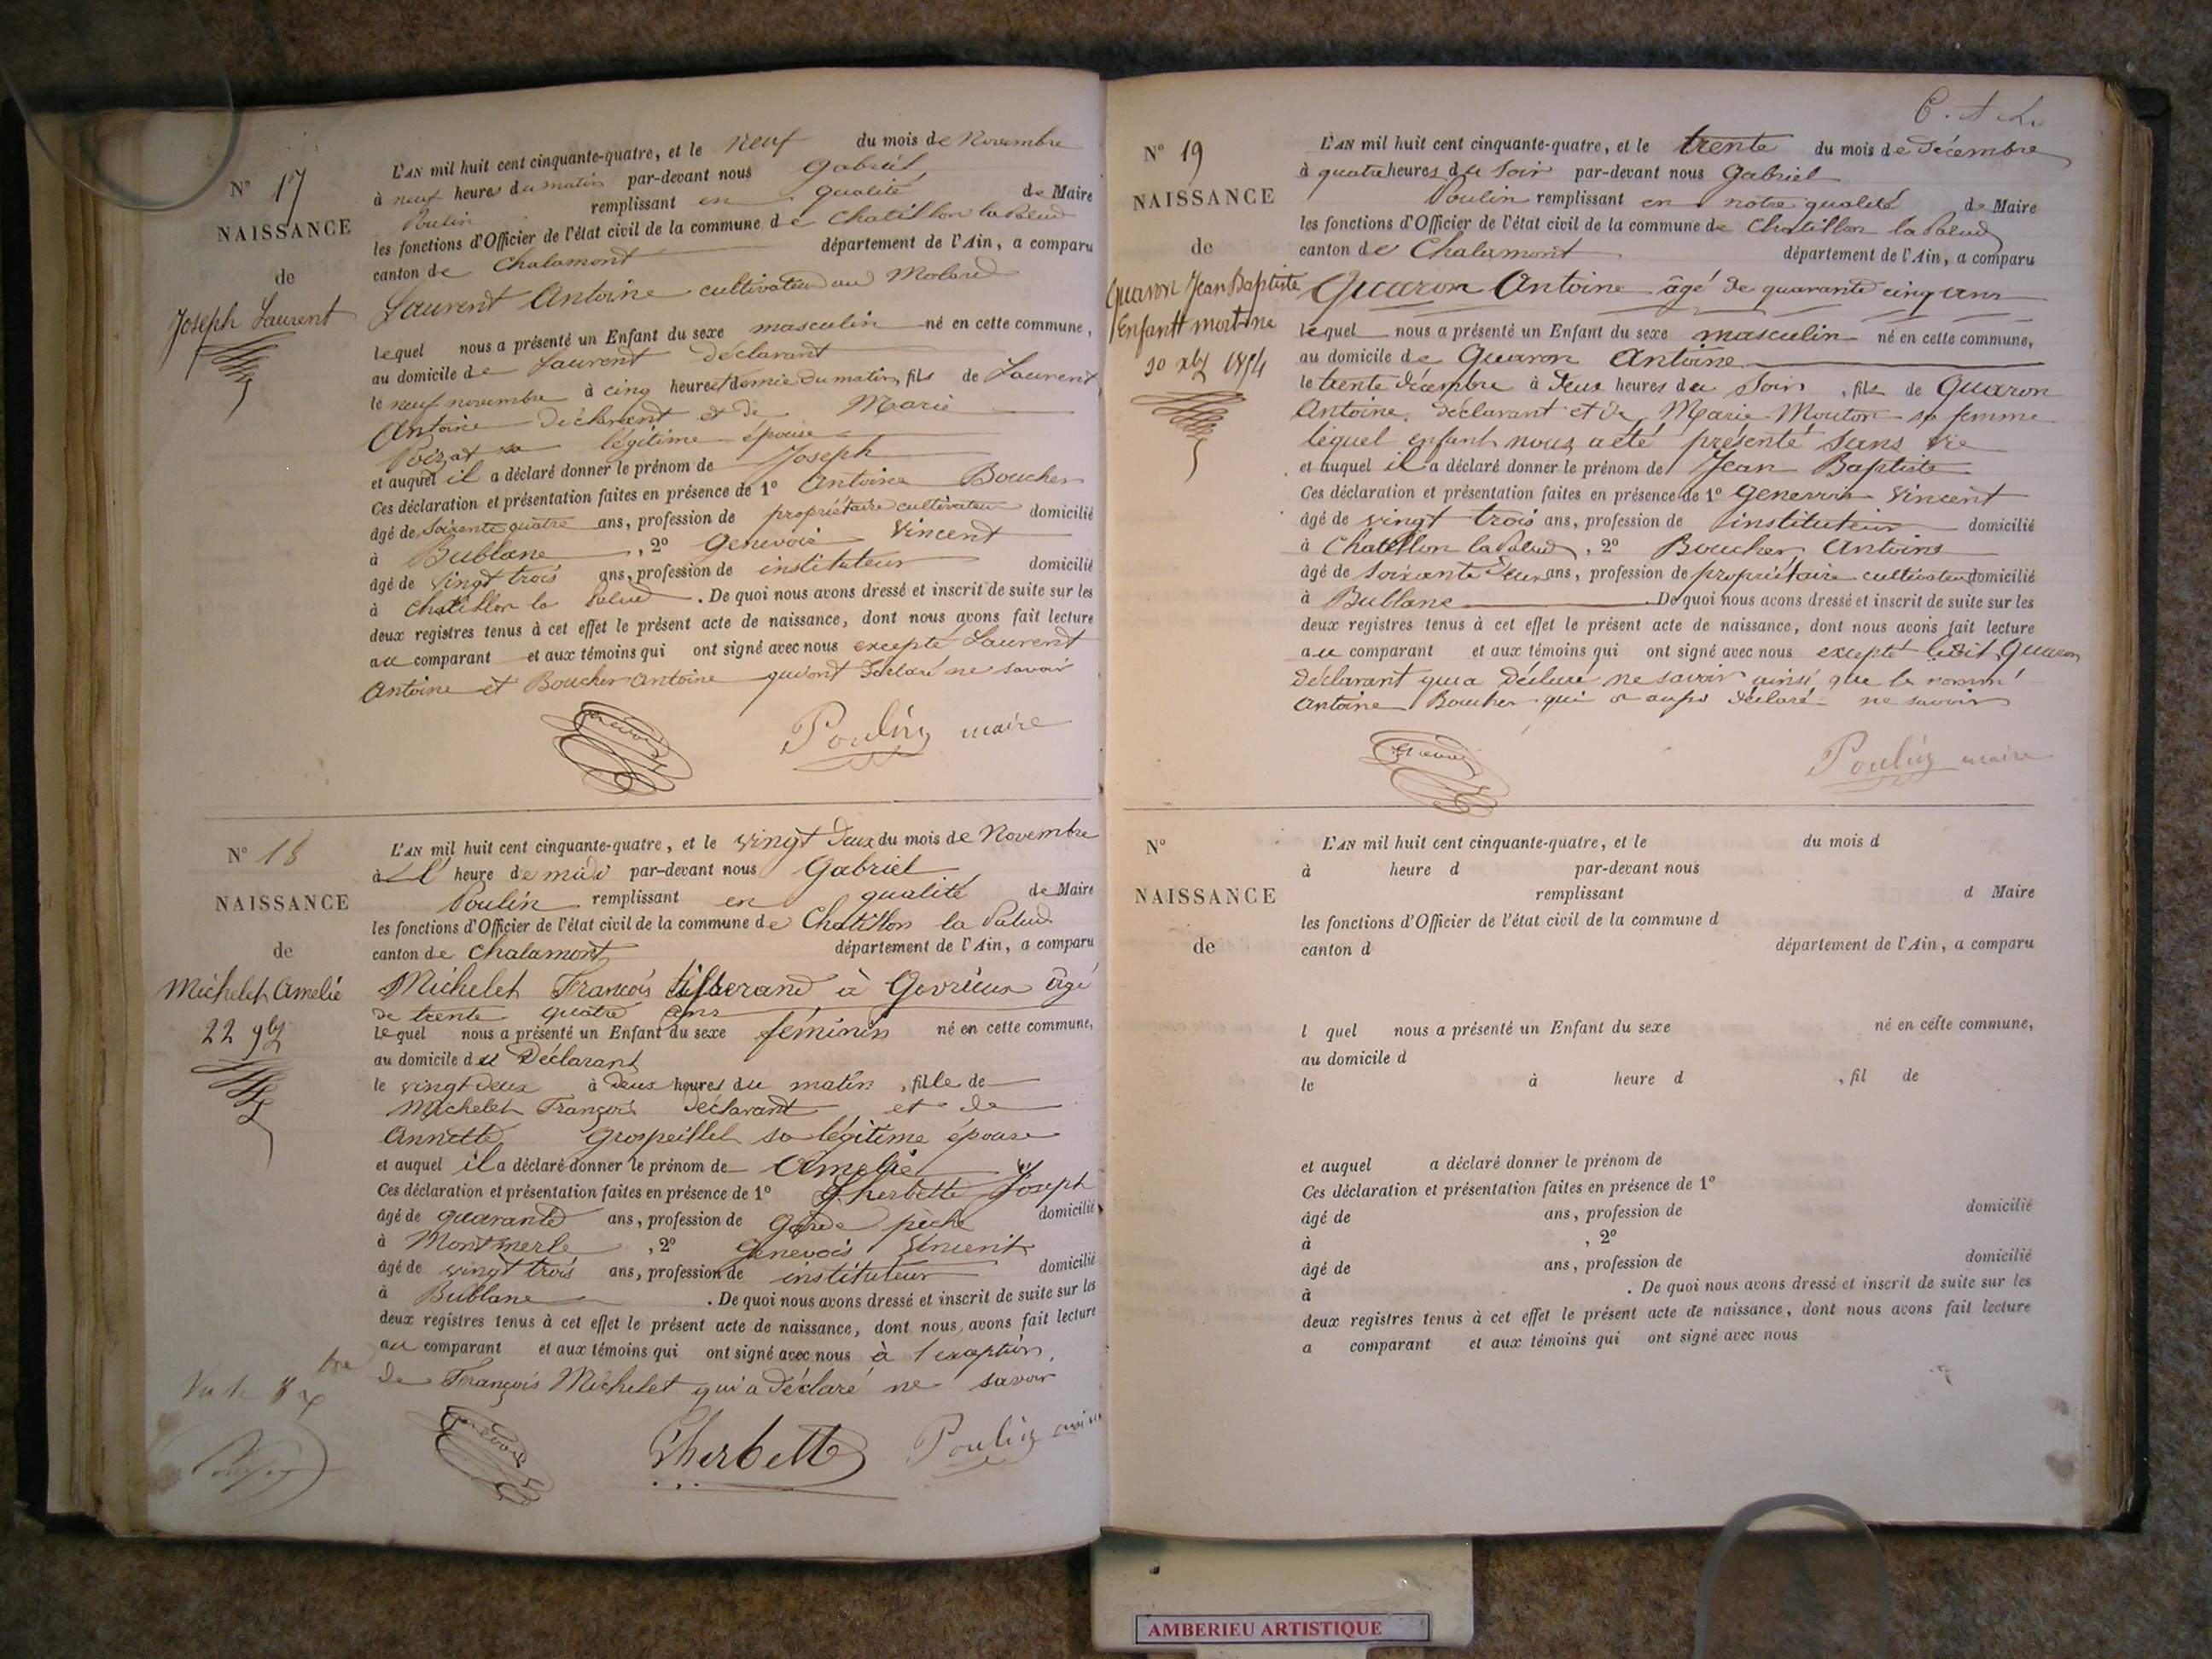 N° 17
NAISSANCE
de
Joseph Laurent
L'AN mil huit cent cinquante-quatre, et le neuf du mois de Novembre
à neuf heures du matin par-devant nous Gabriel
Poulin remplissant en qualité de Maire
les fonctions d'Officier de l'état civil de la commune de Chatillon la Palud
canton de Chalamont département de l'Ain, a comparu
Laurent Antoine cultivateur au Molard
lequel nous a présenté un Enfant du sexe masculin né en cette commune,
au domicile de Laurent déclarant
le neuf novembre à cinq heures et demie du matin, fils de Laurent
Antoine déclarant et de Marie
Poizat sa légitime épouse
et auquel il a déclaré donner le prénom de Joseph
Ces déclaration et présentation faites en présence de 1° Antoine Boucher
âgé de soixante quatre ans, profession de propriétaire cultivateur domicilié
à Bublane, 2° Genevois Vincent
âgé de vingt trois ans, profession de instituteur domicilié
à Chatillon la Palud. De quoi nous avons dressé et inscrit de suite sur les
deux registres tenus à cet effet le présent acte de naissance, dont nous avons fait lecture
au comparant et aux témoins qui ont signé avec nous excepté Laurent
Antoine et Boucher Antoine qui ont déclaré ne savoir
Genevois Poulin maire
N° 18
NAISSANCE
de
Michelet Amelie
22 9bre
L'AN mil huit cent cinquante-quatre, et le vingt deux du mois de Novembre
à l' heure de midi par-devant nous Gabriel
Poulin remplissant en qualité de Maire
les fonctions d'Officier de l'état civil de la commune de Chatillon la Palud
canton de Chalamont département de l'Ain, a comparu
Michelet François tisserand à Gevrieux âgé
de trente quatre ans
lequel nous a présenté un Enfant du sexe féminin né en cette commune,
au domicile du Déclarant
le vingt deux à deux heures du matin, fille de
Michelet François déclarant et de
Annette Grospeillet sa légitime épouse
et auquel il a déclaré donner le prénom de Amelie
Ces déclaration et présentation faites en présence de 1° Lherbette Joseph
âgé de quarante ans, profession de garde pêche domicilié
à Montmerle, 2° Genevois Vincent
âgé de vingt trois ans, profession de instituteur domicilié
à Bublane. De quoi nous avons dressé et inscrit de suite sur les
deux registres tenus à cet effet le présent acte de naissance, dont nous avons fait lecture
au comparant et aux témoins qui ont signé avec nous à l'exeption
de François Michelet qui a déclaré ne savoir
Vu le 8
Genevois Lherbette Poulin maire
N° 19
NAISSANCE
de
Quaron Jean Baptiste
Enfant mort-né
30 xbre 1854
L'AN mil huit cent cinquante-quatre, et le trente du mois de décembre
à quatre heures du soir par-devant nous Gabriel
Poulin remplissant en notre qualité de Maire
les fonctions d'Officier de l'état civil de la commune de Chatillon la Palud
canton de Chalamont département de l'Ain, a comparu
Quaron Antoine âgé de quarante cinq ans
lequel nous a présenté un Enfant du sexe masculin né en cette commune,
au domicile de Quaron Antoine
le trente décembre à deux heures du soir, fils de Quaron
Antoine déclarant et de Marie Mouton sa femme
lequel enfant nous a été présenté sans vie
et auquel il a déclaré donner le prénom de Jean Baptiste
Ces déclaration et présentation faites en présence de 1° Genevois Vincent
âgé de vingt trois ans, profession de instituteur domicilié
à Chatillon la Palud, 2° Boucher Antoine
âgé de soixante deux ans, profession de propriétaire cultivateur domicilié
à Bublane. De quoi nous avons dressé et inscrit de suite sur les
deux registres tenus à cet effet le présent acte de naissance, dont nous avons fait lecture
au comparant et aux témoins qui ont signé avec nous excepté ledit Quaron
déclarant qui a déclaré ne savoir ainsi que le nommé
Antoine Boucher qui a aussi déclaré ne savoir
Genevois Poulin maire
N°
NAISSANCE
de
L'AN mil huit cent cinquante-quatre, et le du mois d
à heure d par-devant nous
remplissant d Maire
les fonctions d'Officier de l'état civil de la commune d
canton d département de l'Ain, a comparu
l quel nous a présenté un Enfant du sexe né en cette commune,
au domicile d
le à heure d , fil de
et auquel a déclaré donner le prénom de
Ces déclaration et présentation faites en présence de 1°
âgé de ans, profession de domicilié
à , 2°
âgé de ans, profession de domicilié
à . De quoi nous avons dressé et inscrit de suite sur les
deux registres tenus à cet effet le présent acte de naissance, dont nous avons fait lecture
a comparant et aux témoins qui ont signé avec nous
AMBERIEU ARTISTIQUE